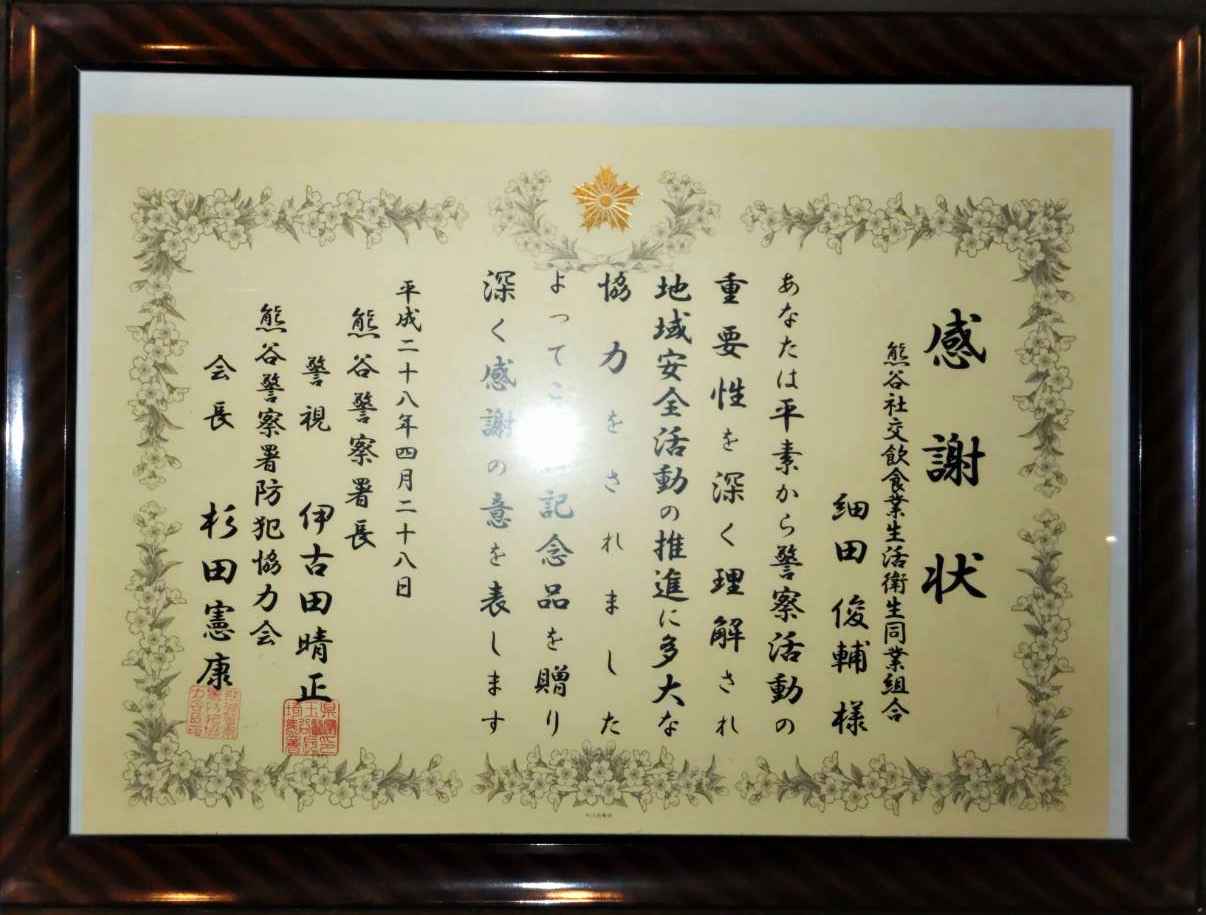 感謝状
熊谷社交飲食業生活衛生同業組合
細田俊輔様
あなたは平素から警察活動の
重要性を深く理解され
地域安全活動の推進に多大な
協力をされました
よってこ 記念品を贈り
深く感謝の意を表します
平成二十八年四月二十八日
熊谷警察署長
警視 伊古田晴正
熊谷警察署防犯協力会
会長 杉田憲康